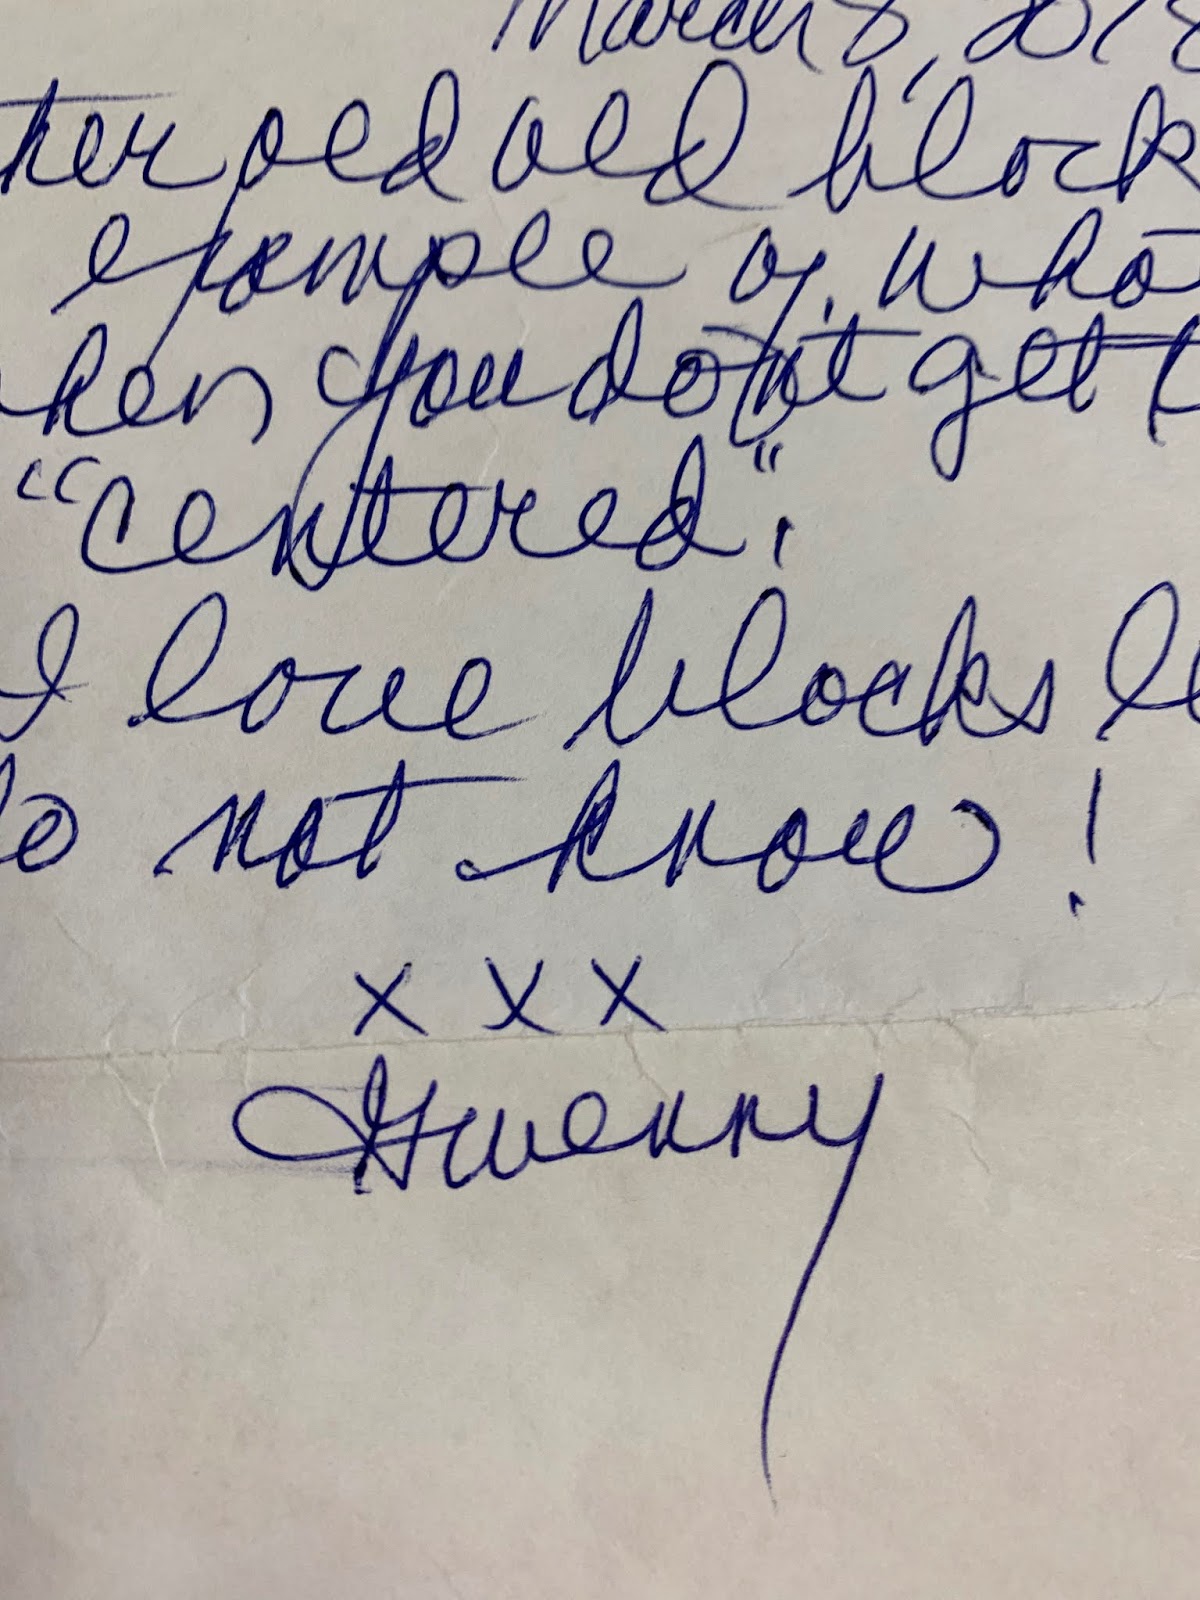 March 8, 2018
ther old old block
example of what
hen you don't get
"centered".
I love blocks
do not know!
x x x
Gwenny